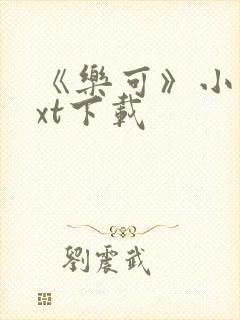 《樂可》小
xt下載
劉震武